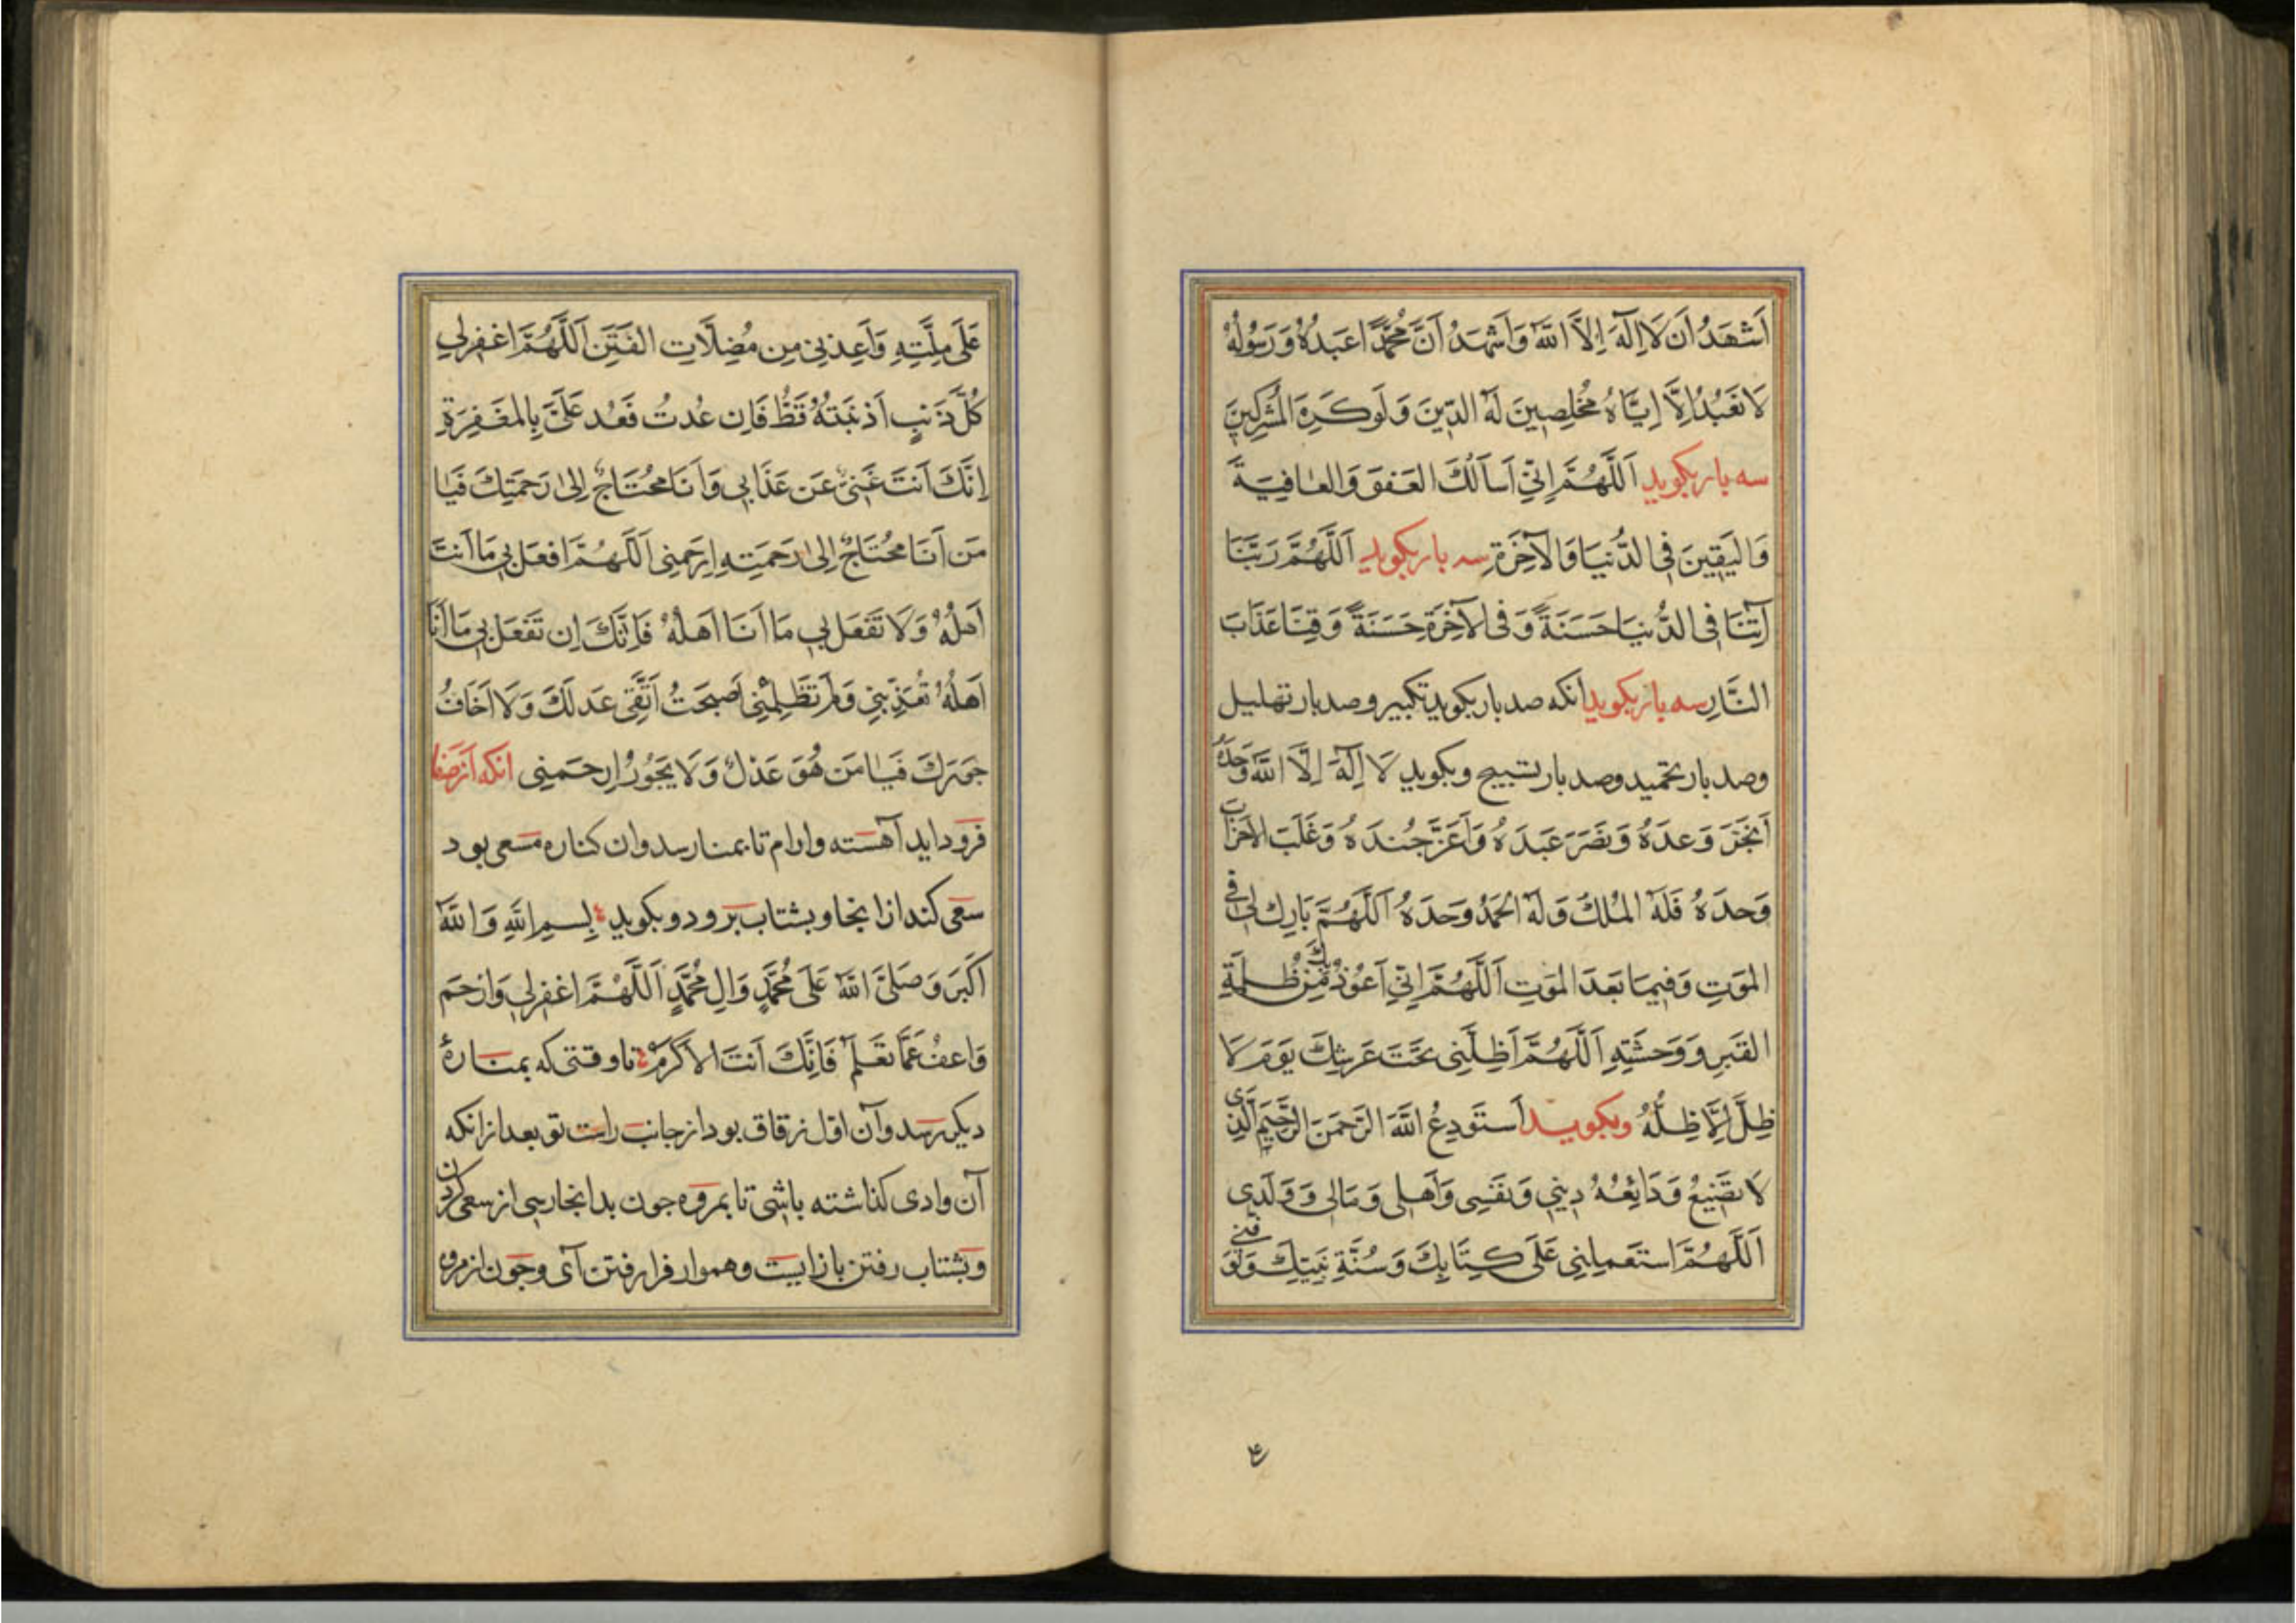 اَشْهَدُ اَن لَا اِلٰهَ اِلَّا اللّٰهُ وَاَشْهَدُ اَنَّ مُحَمَّدًا عَبدُهُ وَرَسُولُهُ
لَا نَعْبُدُ اِلَّا اِيَّاهُ مُخْلِصِينَ لَهُ الدِّينَ وَلَو كَرِهَ المُشْرِكِينَ
سه بار بكويد اَللّٰهُمَّ اِنِّي اَسْاَلُكَ العَفوَ وَالعَافِيَةَ
وَاليَقِينَ فِي الدُّنيَا وَالآخِرَةِ سه بار بكويد اَللّٰهُمَّ رَبَّنَا
آتِنَا فِي الدُّنيَا حَسَنَةً وَفِي الآخِرَةِ حَسَنَةً وَقِنَا عَذَابَ
النَّارِ سه بار بكويد انكه صد بار بكويد تكبير و صد بار تهليل
وصد بار تحميد وصد بار تسبيح و بكويد لَا اِلٰهَ اِلَّا اللّٰهُ وَحدَهُ
اَنجَزَ وَعدَهُ وَنَصَرَ عَبدَهُ وَاَعَزَّ جُندَهُ وَغَلَبَ الاَحزَابَ
وَحدَهُ فَلَهُ المُلكُ وَلَهُ الحَمدُ وَحدَهُ اَللّٰهُمَّ بَارِك لِي فِي
المَوتِ وَفِيمَا بَعدَ المَوتِ اَللّٰهُمَّ اِنِّي اَعُوذُ بِكَ مِن ظُلمَةِ
القَبرِ وَوَحشَتِهِ اَللّٰهُمَّ اَظِلَّنِي تَحتَ عَرشِكَ يَومَ لَا
ظِلَّ اِلَّا ظِلُّهُ وبكويد اَستَودِعُ اللّٰهَ الرَّحمٰنَ الرَّحِيمَ الَّذِي
لَا تَضِيعُ وَدَائِعُهُ دِينِي وَنَفسِي وَاَهلِي وَمَالِي وَوَلَدِي
اَللّٰهُمَّ استَعمِلنِي عَلَى كِتَابِكَ وَسُنَّةِ نَبِيِّكَ وَتَوَفَّنِي
عَلَى مِلَّتِهِ وَاَعِذنِي مِن مُضِلَّاتِ الفِتَنِ اَللّٰهُمَّ اغفِر لِي
كُلَّ ذَنبٍ اَذنَبتُهُ قَطُّ فَاِن عُدتُ فَعُد عَلَيَّ بِالمَغفِرَةِ
اِنَّكَ اَنتَ غَنِيٌّ عَن عَذَابِي وَاَنَا مُحتَاجٌ اِلٰى رَحمَتِكَ فَيَا
مَن اَنَا مُحتَاجٌ اِلٰى رَحمَتِهِ اِرحَمنِي اَللّٰهُمَّ افعَل بِي مَا اَنتَ
اَهلُهُ وَلَا تَفعَل بِي مَا اَنَا اَهلُهُ فَاِنَّكَ اِن تَفعَل بِي مَا اَنَا
اَهلُهُ تُعَذِّبنِي وَلَم تَظلِمنِي اَصبَحتُ اَتَّقِي عَدلَكَ وَلَا اَخَافُ
جَورَكَ فَيَا مَن هُوَ عَدلٌ وَلَا يَجُورُ اِرحَمنِي انكه از صفا
فرود ايد آهسته وارام تا بمنار رسد وان كناره مسعى بود
سعى كند از اينجا و بشتاب برود و بكويد بِسمِ اللّٰهِ وَاللّٰهُ
اَكبَر وَصَلَّى اللّٰهُ عَلَى مُحَمَّدٍ وَالِ مُحَمَّدٍ اَللّٰهُمَّ اغفِر لِي وَارحَم
وَاعفُ عَمَّا تَعلَم فَاِنَّكَ اَنتَ الاَكرَمُ تا وقتى كه بمناره
ديكر رسد وآن اول زقاق بود از جانب راست تو بعد از انكه
آن وادى كذاشته باشى تا بمروه جون بدانجا رسى از سعى كردن
و بشتاب رفتن باز ايست و هموار فرا رفتن آى و جون از مروه